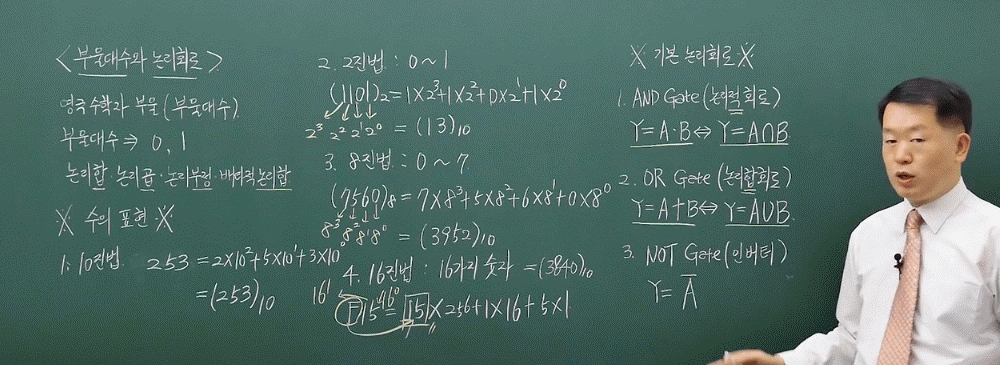 <부울대수와 논리회로>
영국수학자 부울(부울대수)
부울대수 ⇒ 0, 1
논리합·논리곱·논리부정·배타적논리합
※ 수의 표현 ※
1. 10진법. 253 = 2×10²+5×10¹+3×10⁰
=(253)₁₀
2. 2진법 : 0~1
(1101)₂ = 1×2³+1×2²+0×2¹+1×2⁰
2³ 2² 2¹ 2⁰ = (13)₁₀
3. 8진법 : 0~7
(7560)₈ = 7×8³+5×8²+6×8¹+0×8⁰
8³ 8² 8¹ 8⁰ = (3952)₁₀
4. 16진법 : 16가지 숫자 = (3840)₁₀
16¹
F15 = 15×256+1×16+5×1
※ 기본 논리회로 ※
1. AND Gate(논리적회로)
Y=A·B ⇔ Y=A∩B
2. OR Gate(논리합회로)
Y=A+B ⇔ Y=A∪B
3. NOT Gate(인버터)
Y=A̅